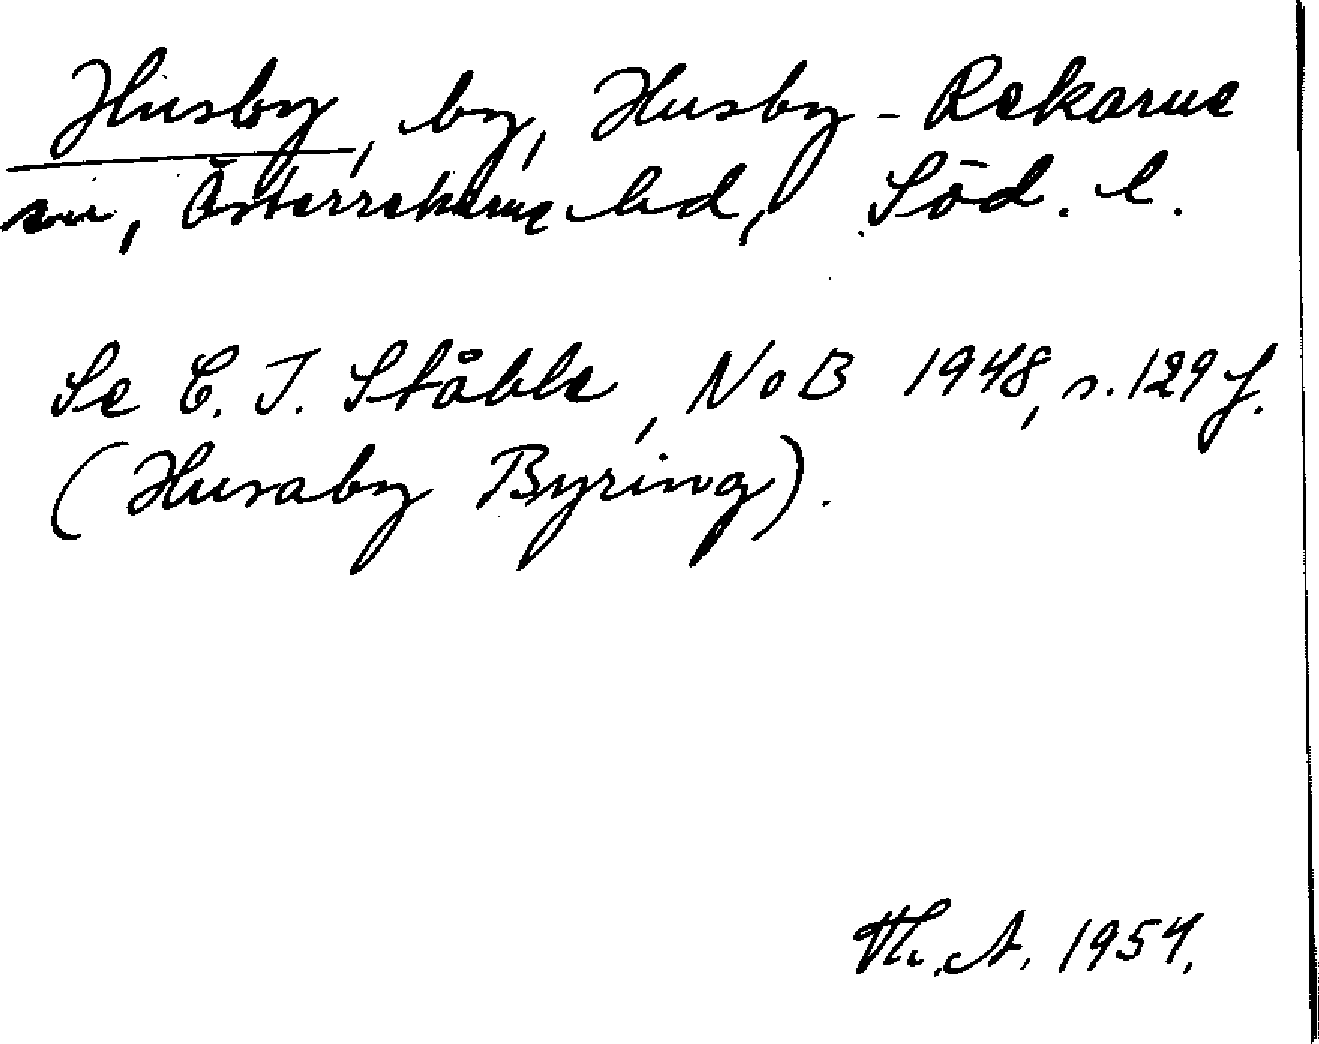 Husby, by, Husby-Rekarne
sn, Österrekarne hd, Söd. l.
Se C. I. Ståhle, NoB 1948, s. 129 f.
(Husaby Byring).
Th. A. 1954.